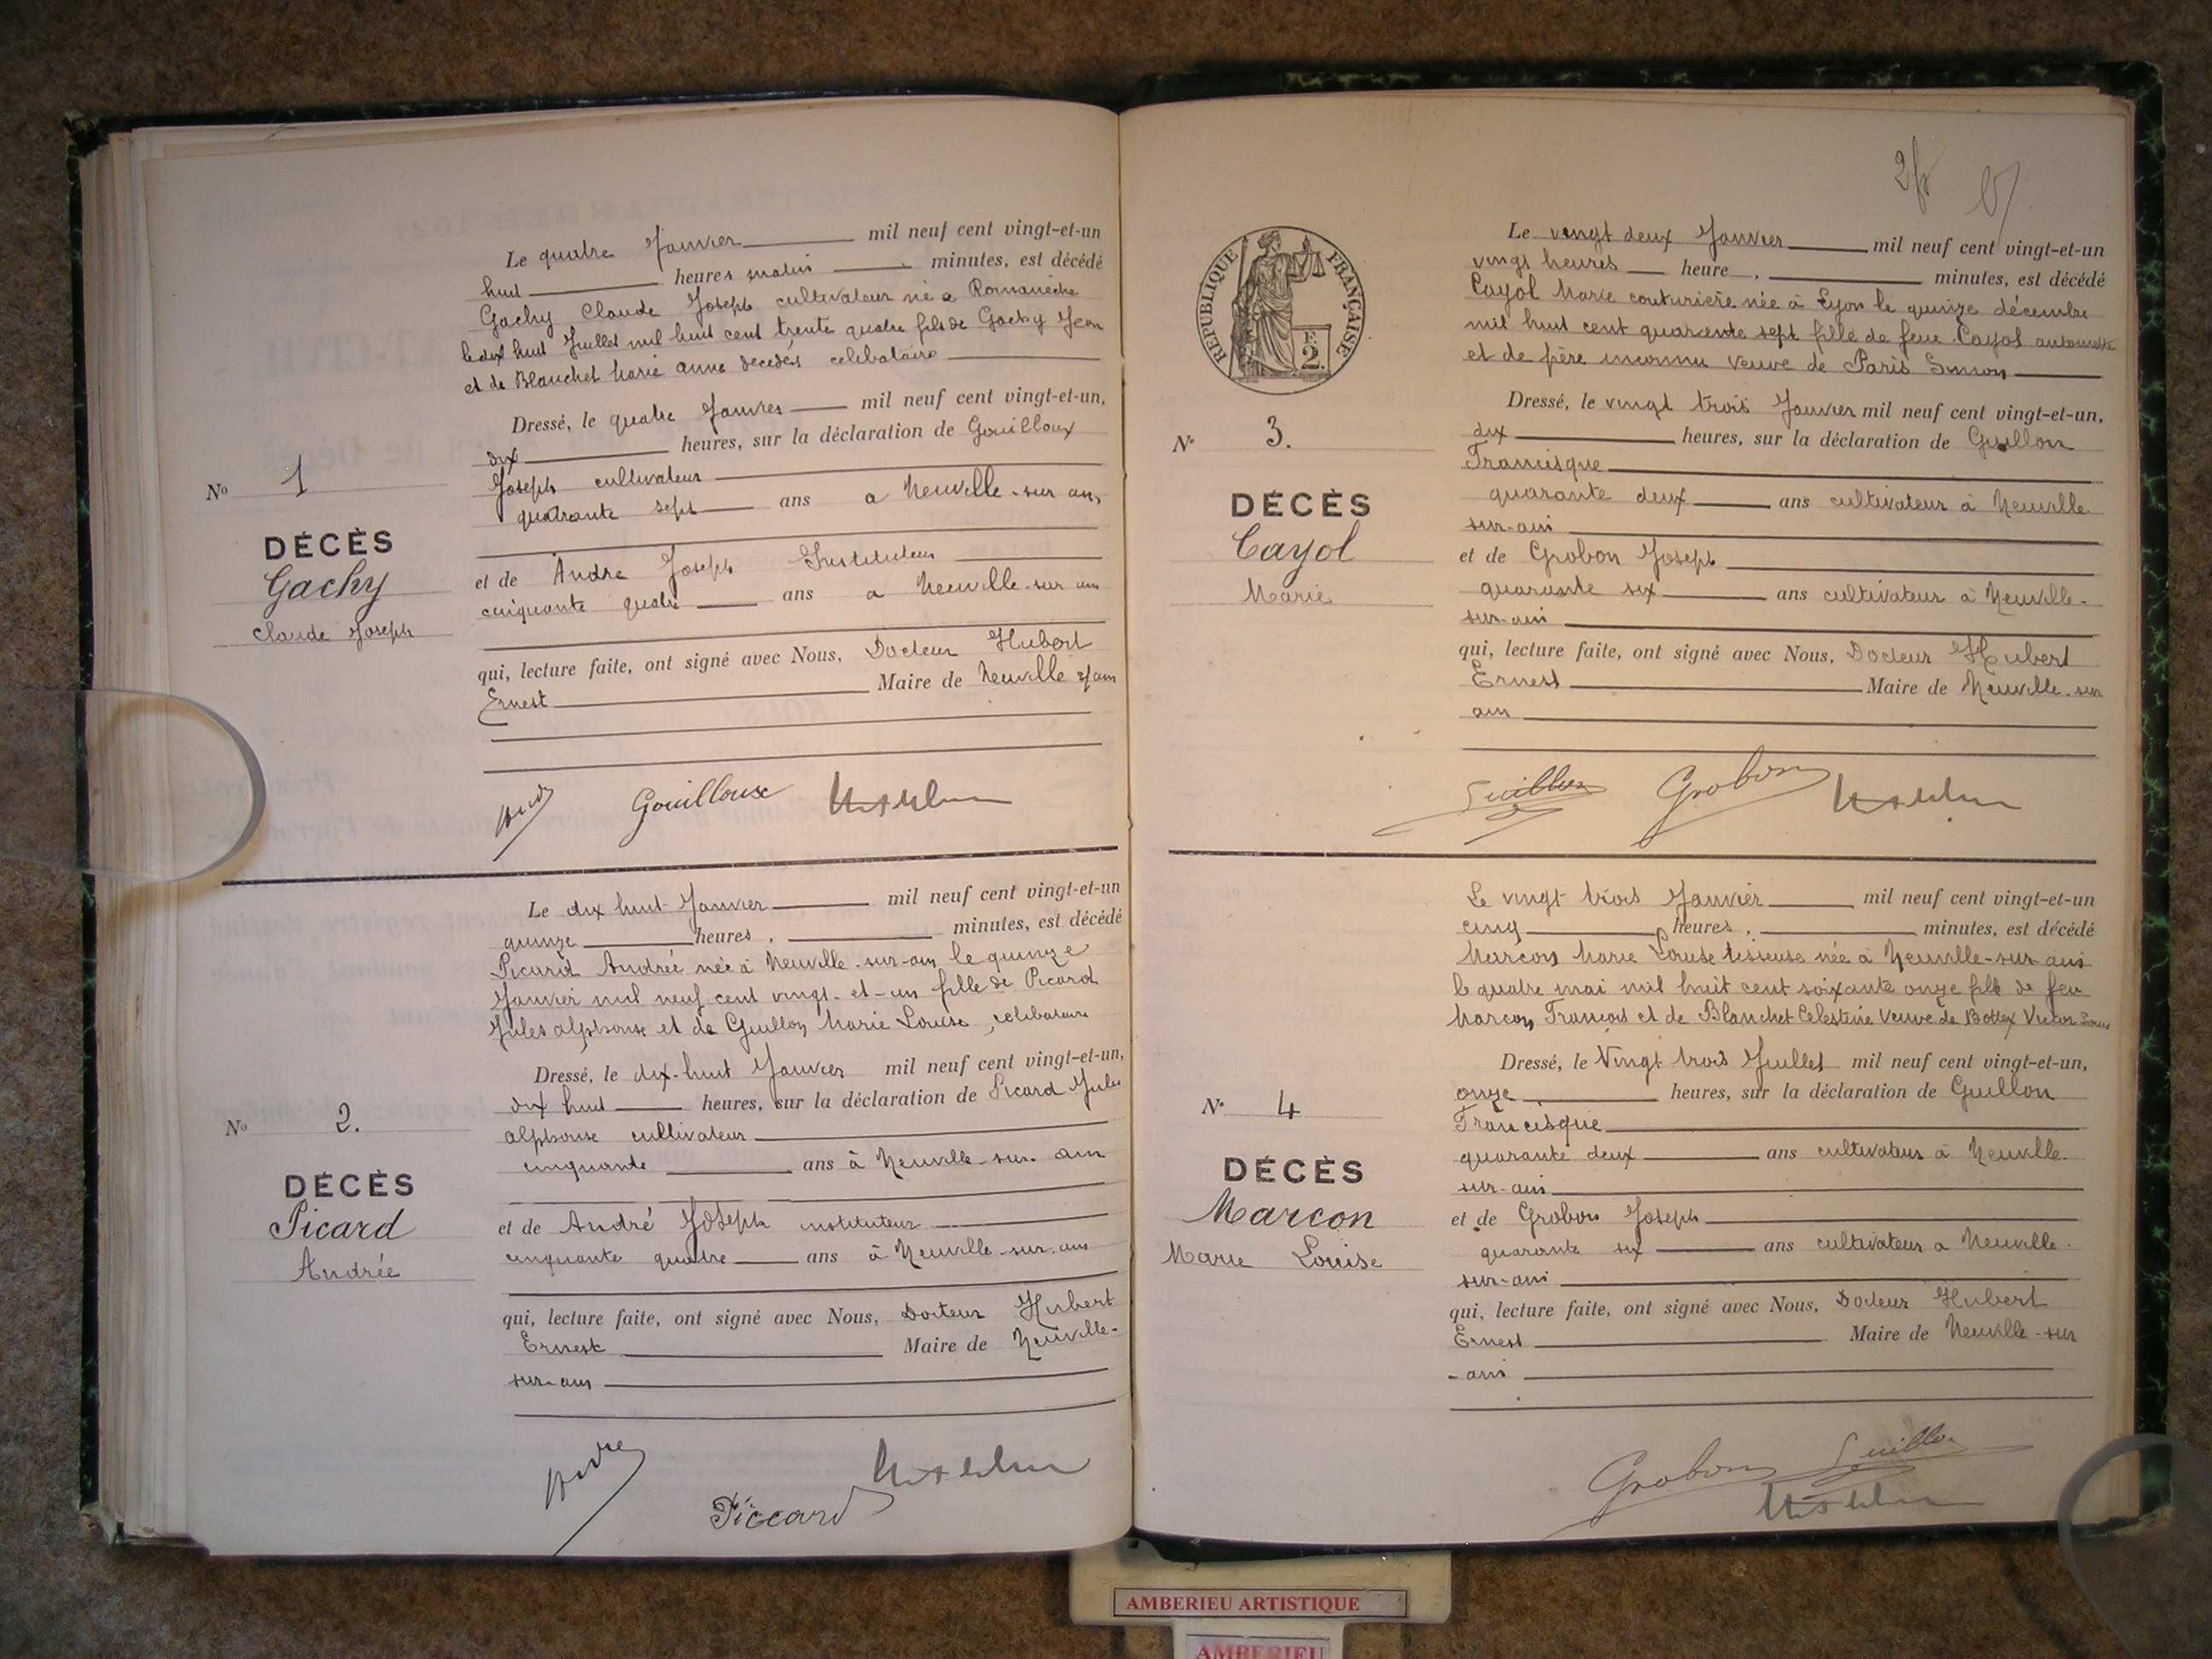 Le quatre Janvier mil neuf cent vingt-et-un
huit heures matin minutes, est décédé
Gachy Claude Joseph cultivateur né a Romanèche
le dix huit Juillet mil huit cent trente quatre fils de Gachy Jean
et de Blanchet Marie anne décédés celibataire
Dressé, le quatre Janvier mil neuf cent vingt-et-un,
dix heures, sur la déclaration de Gouilloux
Joseph cultivateur
quatrante sept ans a Neuville-sur ain,
et de Andre Joseph Instituteur
cinquante quatre ans a Neuville-sur ain
qui, lecture faite, ont signé avec Nous, Docteur Hubert
Ernest Maire de Neuville s/ain
No 1
DÉCÈS
Gachy
Claude Joseph
Gouilloux
Le dix huit Janvier mil neuf cent vingt-et-un
quinze heures, minutes, est décédé
Picard Andrée née à Neuville-sur-ain le quinze
Janvier mil neuf cent vingt-et-un fille de Picard
Jules alphonse et de Guillon Marie Louise, celibataire
Dressé, le dix-huit Janvier mil neuf cent vingt-et-un,
dix huit heures, sur la déclaration de Picard Jules
alphonse cultivateur
cinquante ans à Neuville-sur-ain
et de André Joseph instituteur
cinquante quatre ans à Neuville-sur-ain
qui, lecture faite, ont signé avec Nous, Docteur Hubert
Ernest Maire de Neuville-
sur-ain
No 2.
DÉCÈS
Picard
Andrée
Piccard
2f
RÉPUBLIQUE FRANÇAISE
E
2.
Le vingt deux Janvier mil neuf cent vingt-et-un
vingt heures heure, minutes, est décédé
Cayol Marie couturière née à Lyon le quinze décembre
mil huit cent quarante sept fille de feue Cayol antoinette
et de père inconnu veuve de Paris Simon
Dressé, le vingt trois Janvier mil neuf cent vingt-et-un,
dix heures, sur la déclaration de Guillon
Francisque
quarante deux ans cultivateur à Neuville
sur-ain
et de Grobon Joseph
quarante six ans cultivateur à Neuville-
sur-ain
qui, lecture faite, ont signé avec Nous, Docteur Hubert
Ernest Maire de Neuville-sur
ain
No 3.
DÉCÈS
Cayol
Marie
Guillon Grobon
Le vingt trois Janvier mil neuf cent vingt-et-un
cinq heures, minutes, est décédé
Marcon Marie Louise tisseuse née à Neuville-sur-ain
le quatre mai mil huit cent soixante onze fille de feu
Marcon François et de Blanchet Celestine Veuve de Bottex Victor Louis
Dressé, le Vingt trois Juillet mil neuf cent vingt-et-un,
onze heures, sur la déclaration de Guillon
Francisque
quarante deux ans cultivateur à Neuville-
sur-ain
et de Grobon Joseph
quarante six ans cultivateur a Neuville-
sur-ain
qui, lecture faite, ont signé avec Nous, Docteur Hubert
Ernest Maire de Neuville-sur
-ain
No 4
DÉCÈS
Marcon
Marie Louise
Grobon Guillon
AMBERIEU ARTISTIQUE
AMBERIEU